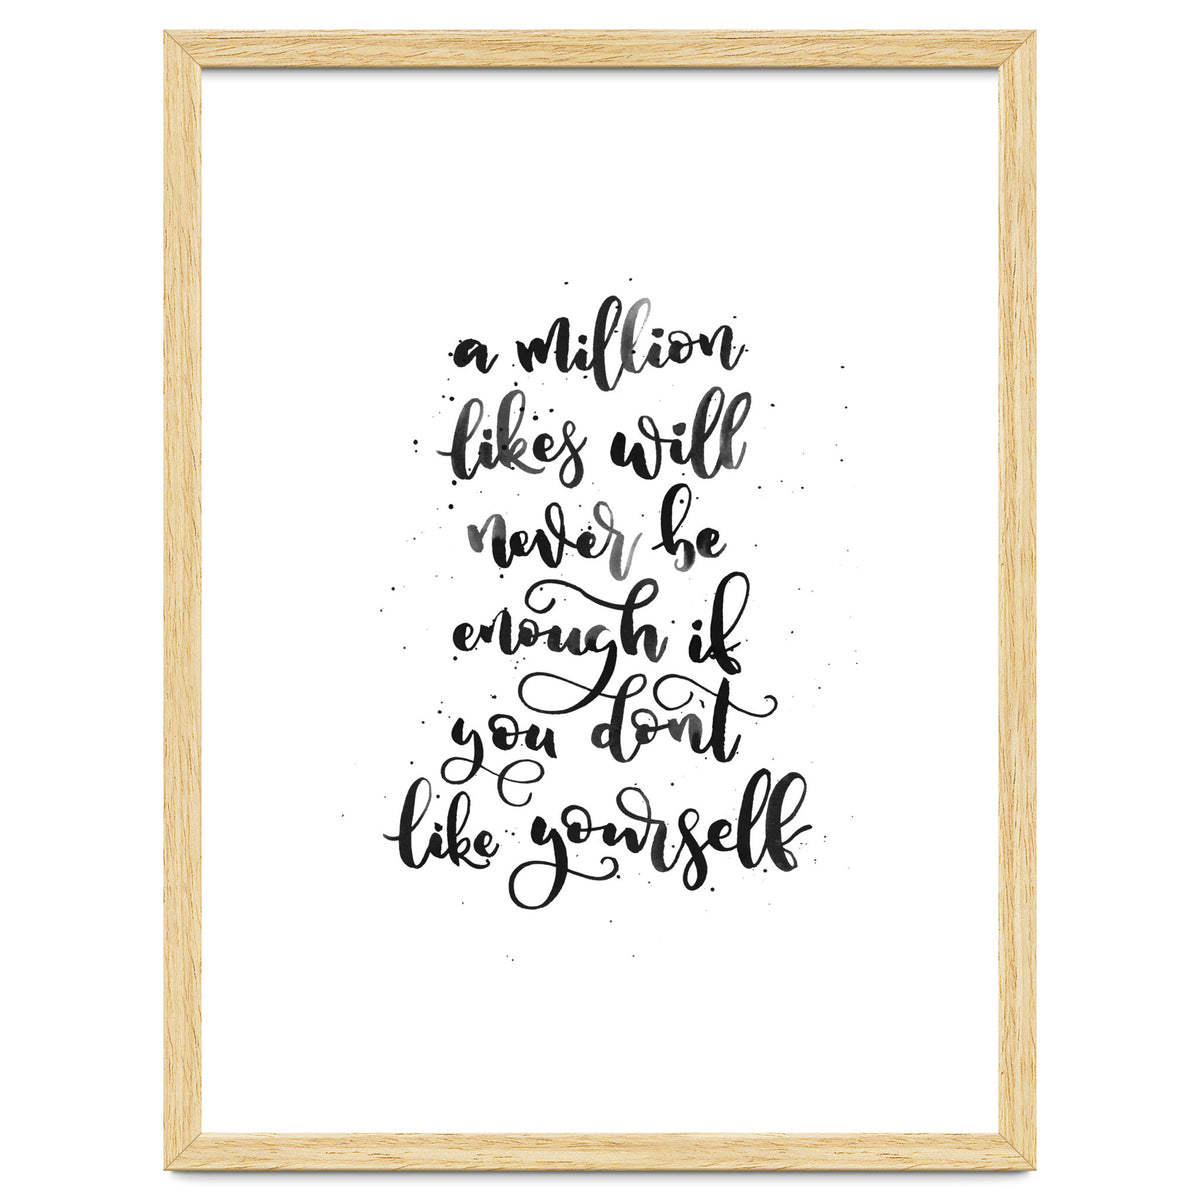 a million
likes will
never be
enough if
you don't
like yourself